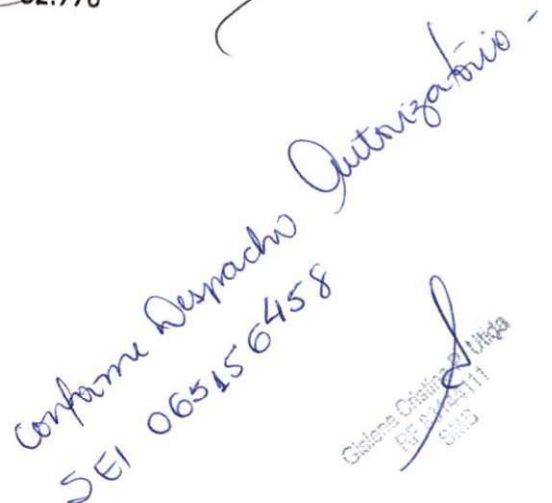 conforme Despacho Autorizatório -
SEI 065156458
Gislene Cristina Utida
RF
SMS